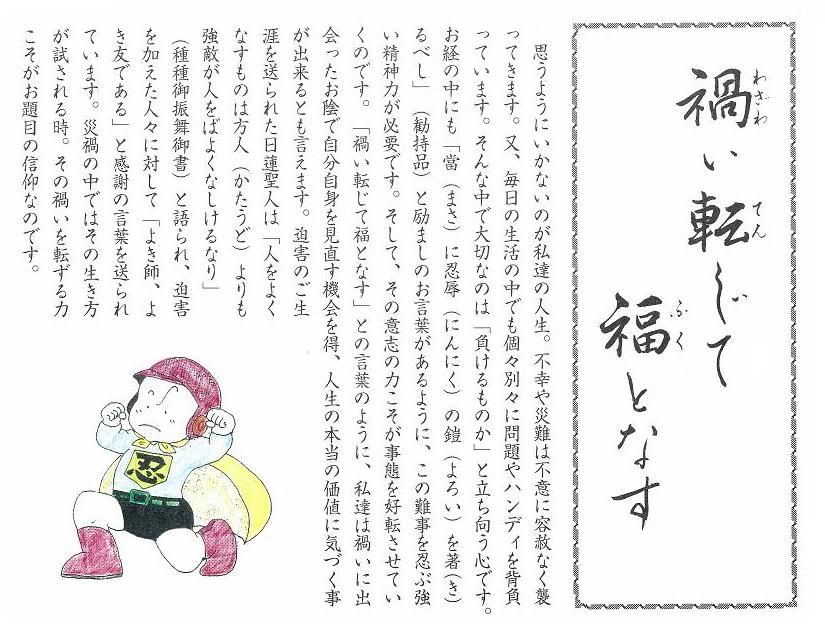 禍い転じて
わざわ
てん
福となす
ふく
思うようにいかないのが私達の人生。不幸や災難は不意に容赦なく襲
ってきます。又、毎日の生活の中でも個々別々に問題やハンディを背負
っています。そんな中で大切なのは「負けるものか」と立ち向う心です。
お経の中にも「當（まさ）に忍辱（にんにく）の鎧（よろい）を著（き）
るべし」（勧持品）と励ましのお言葉があるように、この難事を忍ぶ強
い精神力が必要です。そして、その意志の力こそが事態を好転させてい
くのです。「禍い転じて福となす」との言葉のように、私達は禍いに出
会ったお陰で自分自身を見直す機会を得、人生の本当の価値に気づく事
が出来るとも言えます。迫害のご生
涯を送られた日蓮聖人は「人をよく
なすものは方人（かたうど）よりも
強敵が人をばよくなしけるなり」
（種種御振舞御書）と語られ、迫害
を加えた人々に対して「よき師、よ
き友である」と感謝の言葉を送られ
ています。災禍の中ではその生き方
が試される時。その禍いを転ずる力
こそがお題目の信仰なのです。
忍